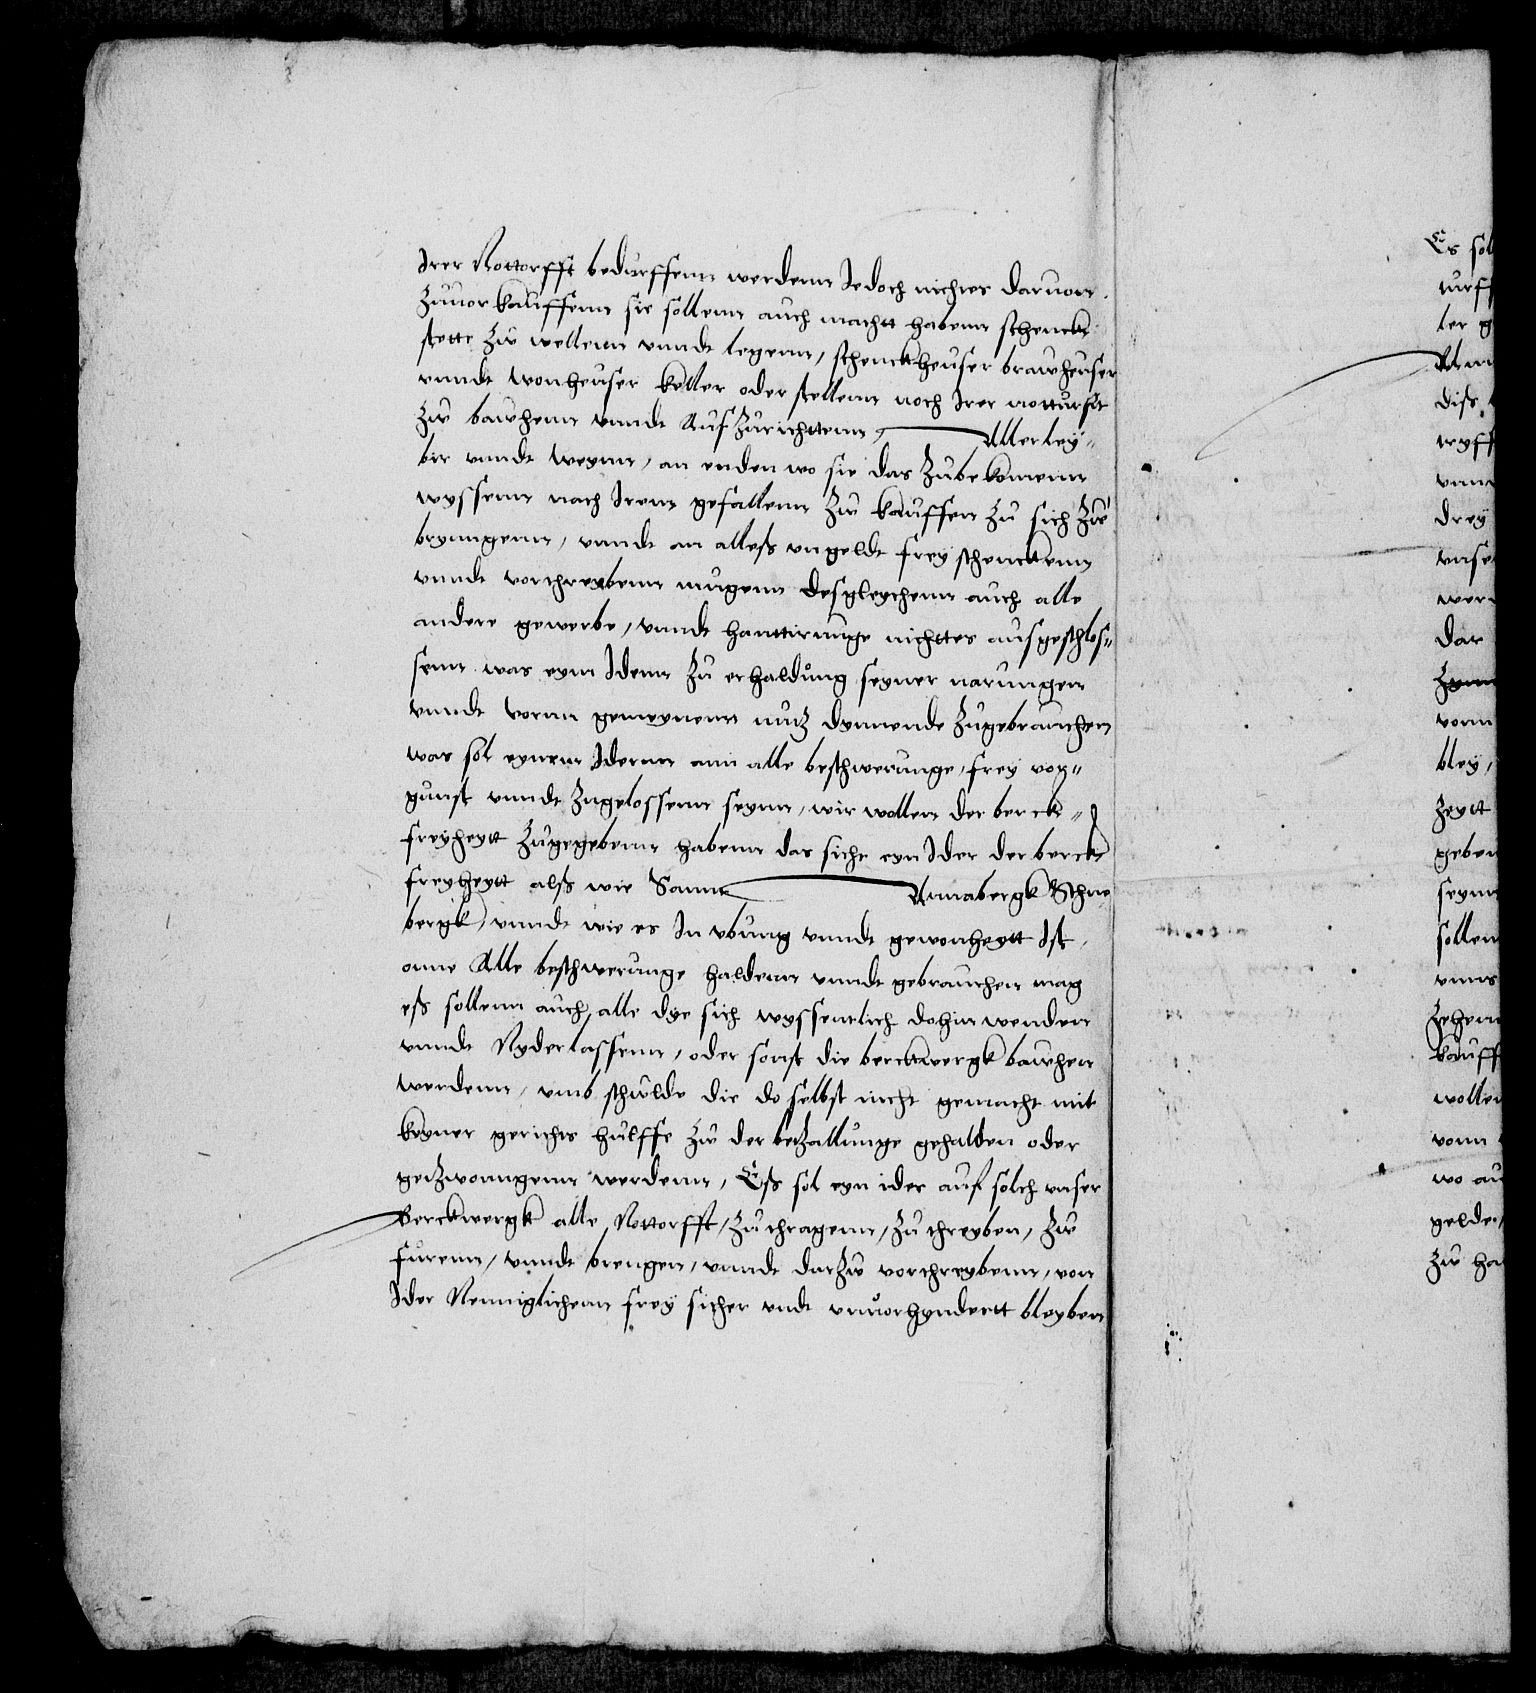 Irer Nottorfft bedurffenn werdenn Jedoch nichtes daruon
zuuorkauffenn sie sollenn auch machtt habenn schenck
stette zw wellenn vnndt legenn, schenckheuser brawheuser
vnndt wonheuser keller oder stellenn noch Irer notturft
zw bawhenn vnndt Auf zurichttenn, Allerley
bir vnndt weynn, an enden wo sie das zubekomenn
wyssenn nach Irem gefallenn zw kauffen zu sich zw
bryngenn, vnndt an alleß vngeldt frey schenckenn
vnndt vorthreybenn mugenn desgleychenn auch alle
andere gewerbe, vnndt hanttirunge nichttes ausgeschlos-
senn was eym Idenn zu erhaldung seyner narungen
vnndt vorm gemeynenn nutz dynnende zugebrauchen
was sol eynem Iderm ann alle beschwerunge, frey vor-
gunst vnndt zugelossenn seynn, wir wollen der berck-
freyheytt zugegebenn habenn das siche eyn Ider der berck
freyheytt alß wie Sannt Annabergk Schne
bergk, vnndt wie es In vbung vnndt gewonheytt Ist,
onne Alle beschwerunge haldenn vnndt gebrauchen mag
eß sollenn auch, alle dye sich wyssentlich dohin wenden
vnndt Nyderlassenn, oder sonst die berckwergk bawhen
werdenn, vmb schulde die do selbst nicht gemacht mit
keyner gerichts hulffe zw der betzallunge gehalden oder
getzwonngenn werdenn, Eß sol eyn ider auf solch vnser
berckwergk alle Nottorfft, zuthragenn, zuthreyben, zw
furenn, vnndt brengen, vnndt darzw vorthreybenn, von
Ider Menniglichenn frey sicher vndt vnuorhyndertt bleyben
Es sol
ler g
diß
drey
vnse
wer
Dar
vonn
bley,
zeytt
geben
seynn
sollen
vnns
zehenn
kauff
wollen
vonn
wo au
gelde,
zw ha